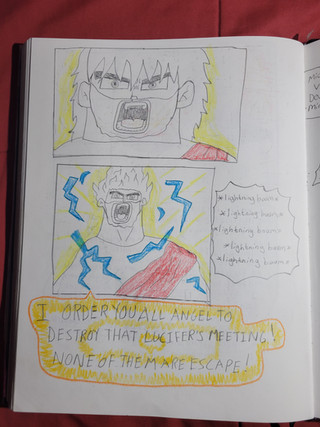 *lightning boom*
*lightning boom*
*lightning boom*
*lightning boom*
*lightning boom*
I ORDER YOU ALL ANGEL TO
DESTROY THAT LUCIFER'S MEETING!
NONE OF THEM ARE ESCAPE!